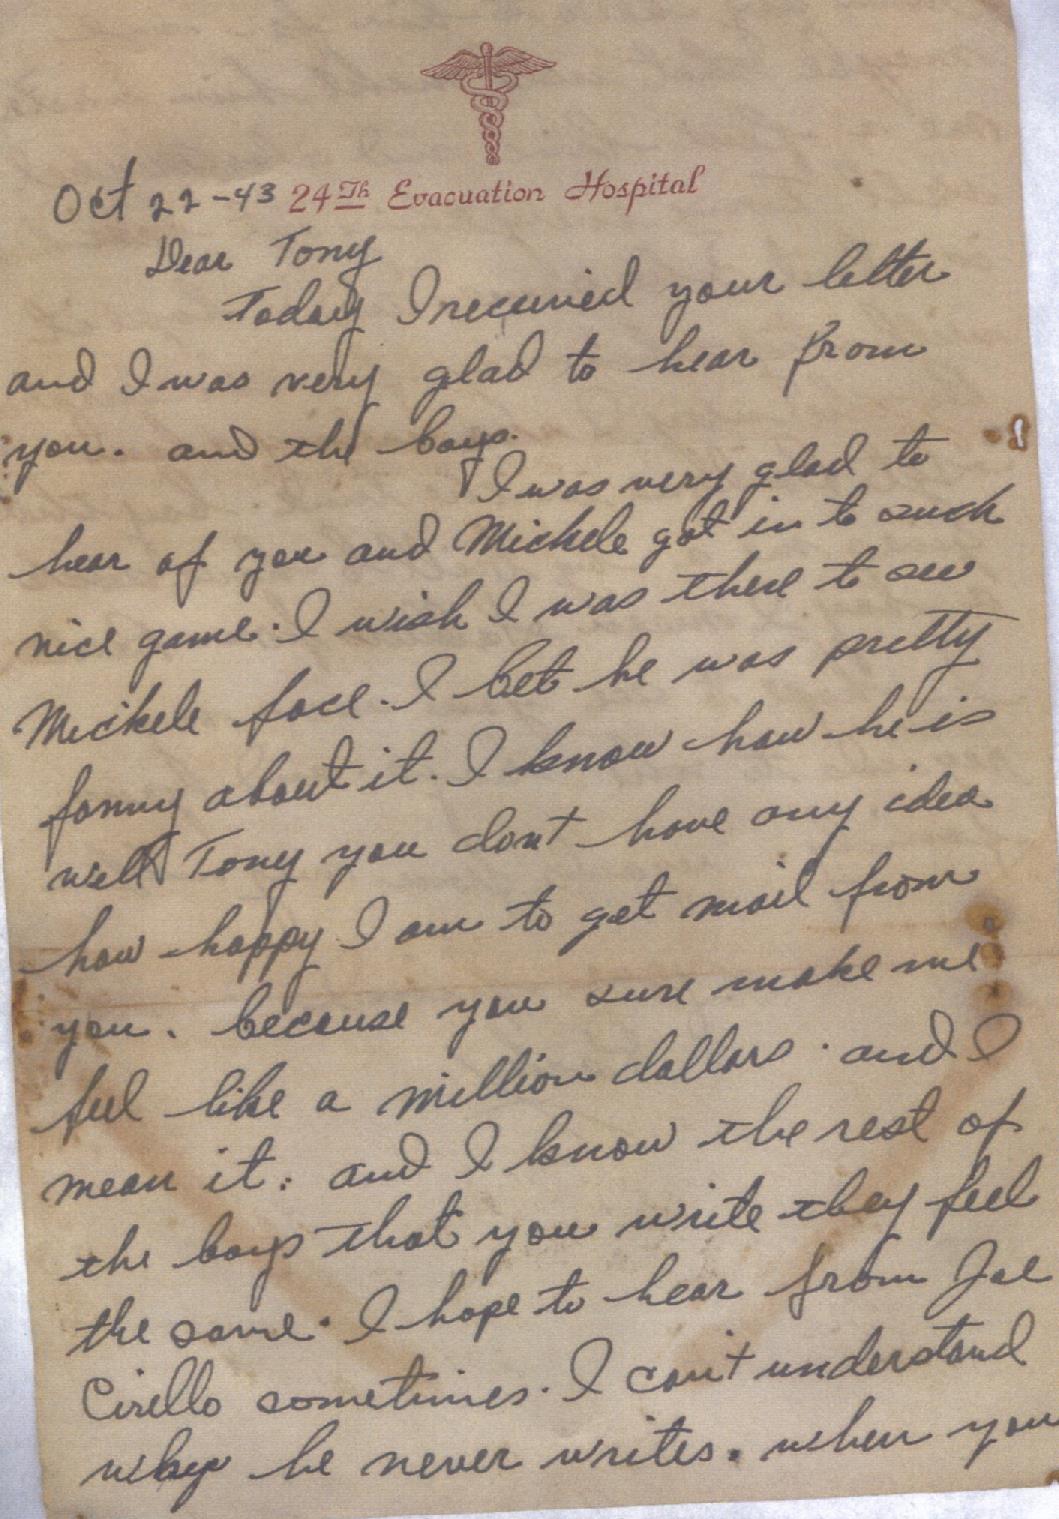 Oct 22-43 24Th Evacuation Hospital
Dear Tony
Today I received your letter
and I was very glad to hear from
you. and the boys.
I was very glad to
hear of you and Mickele got in to such
nice game. I wish I was there to see
Mickele face. I bet he was pretty
fonny about it. I know how he is
well Tony you don't have any idea
how happy I am to get mail from
you. because you sure make me
feel like a million dollars. and I
mean it. and I know the rest of
the boys that you write they feel
the same. I hope to hear from Joe
Cirello sometimes. I can't understand
why he never writes. when you